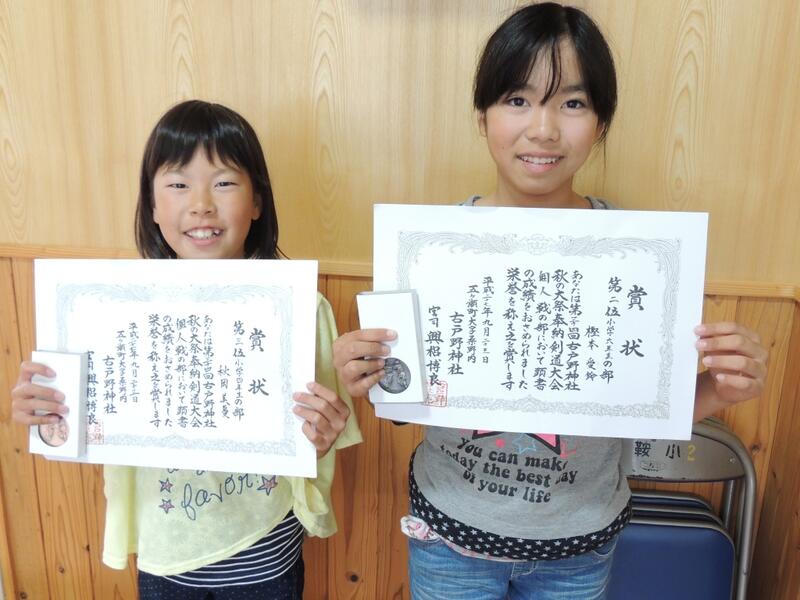 賞状
第三位 小学四年生の部
秋岡 美曼
あなたは第 回古戸野神社
秋の大祭奉納剣道大会
個人戦の部において頭書
の成績をおさめられました
栄誉を称え之を賞します
平成二十 年九月二十三日
五ヶ瀬町大字桑野内
古戸野神社
宮司 興梠博良
favor!
賞状
第二位 小学六年生の部
樫本 愛鈴
あなたは第 回古戸野神社
秋の大祭奉納剣道大会
個人戦の部において頭書
の成績をおさめられました
栄誉を称え之を賞します
平成二十 年九月二十三日
五ヶ瀬町大字桑野内
古戸野神社
宮司 興梠博良
you can make
today the best day
of your life
鞍小